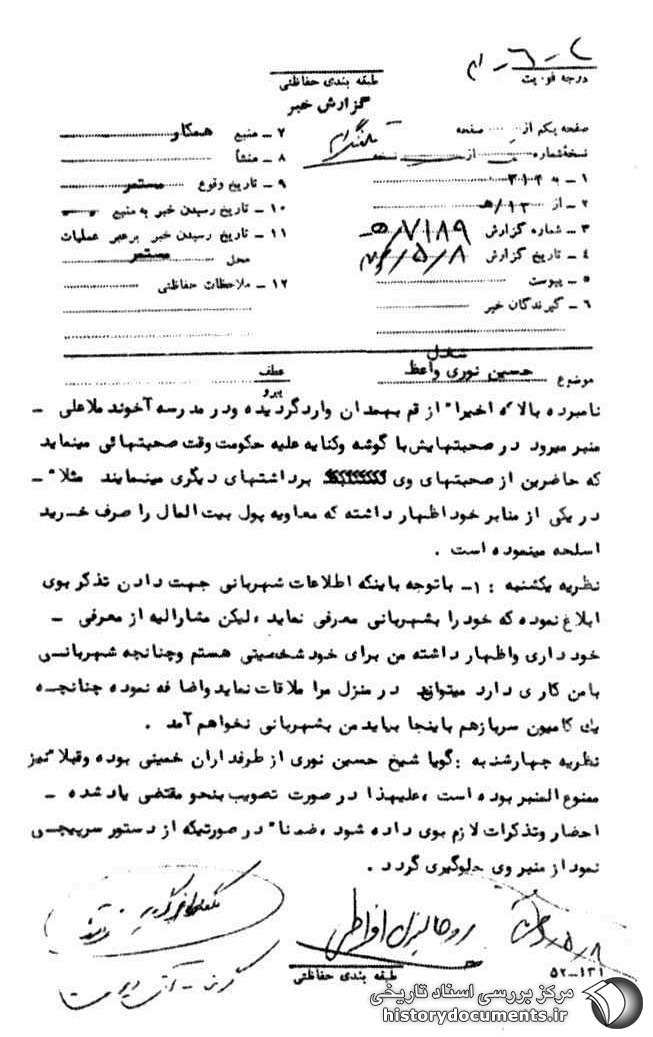 طبقه بندی حفاظتی
گزارش خبر
درجه فوریت
صفحه یکم از صفحه
نسخهٔ شماره از نسخه
۱ ـ به ۳۱۲
۲ ـ از ۱۲/هـ
۳ ـ شماره گزارش ۷۱۸۹/هـ
۴ ـ تاریخ گزارش ۵/۸/
۵ ـ پیوست
۶ ـ گیرندگان خبر
۷ ـ منبع همکار
۸ ـ منشأ
۹ ـ تاریخ وقوع مستمر
۱۰ ـ تاریخ رسیدن خبر به منبع
۱۱ ـ تاریخ رسیدن خبر برهبر عملیات
محل مستمر
۱۲ ـ ملاحظات حفاظتی
شغل
موضوع حسین نوری واعظ
عطف
پیرو
نامبرده بالا که اخیرا" از قم بهمدان وارد گردیده ودر مدرسه آخوند ملاعلی ـ
منبر میرود در صحبتهایش با گوشه وکنایه علیه حکومت وقت صحبتهائی مینماید
که حاضرین از صحبتهای وی برداشتهای دیگری مینمایند مثلا" ـ
در یکی از منابر خود اظهار داشته که معاویه پول بیت المال را صرف خرید
اسلحه مینموده است .
نظریه یکشنبه : ۱ـ باتوجه باینکه اطلاعات شهربانی جهت دادن تذکر بوی
ابلاغ نموده که خود را بشهربانی معرفی نماید ،لیکن مشارالیه از معرفی ـ
خود داری واظهار داشته من برای خود شخصیتی هستم وچنانچه شهربانی
بامن کاری دارد میتواند در منزل مرا ملاقات نماید واضافه نموده چنانچه
یک کامیون سرباز هم باینجا بیاید من بشهربانی نخواهم آمد .
نظریه چهارشنبه :گویا شیخ حسین نوری از طرفداران خمینی بوده وقبلا" نیز
ممنوع المنبر بوده است ،علیهذا در صورت تصویب بنحو مقتضی یاد شده ـ
احضار وتذکرات لازم بوی داده شود ،ضمنا" در صورتیکه از دستور سرپیچی
نمود از منبر وی جلوگیری گردد .
روحانیون افراطی
طبقه بندی حفاظتی
۱۳۱ـ۵۲
مرکز بررسی اسناد تاریخی
historydocuments.ir